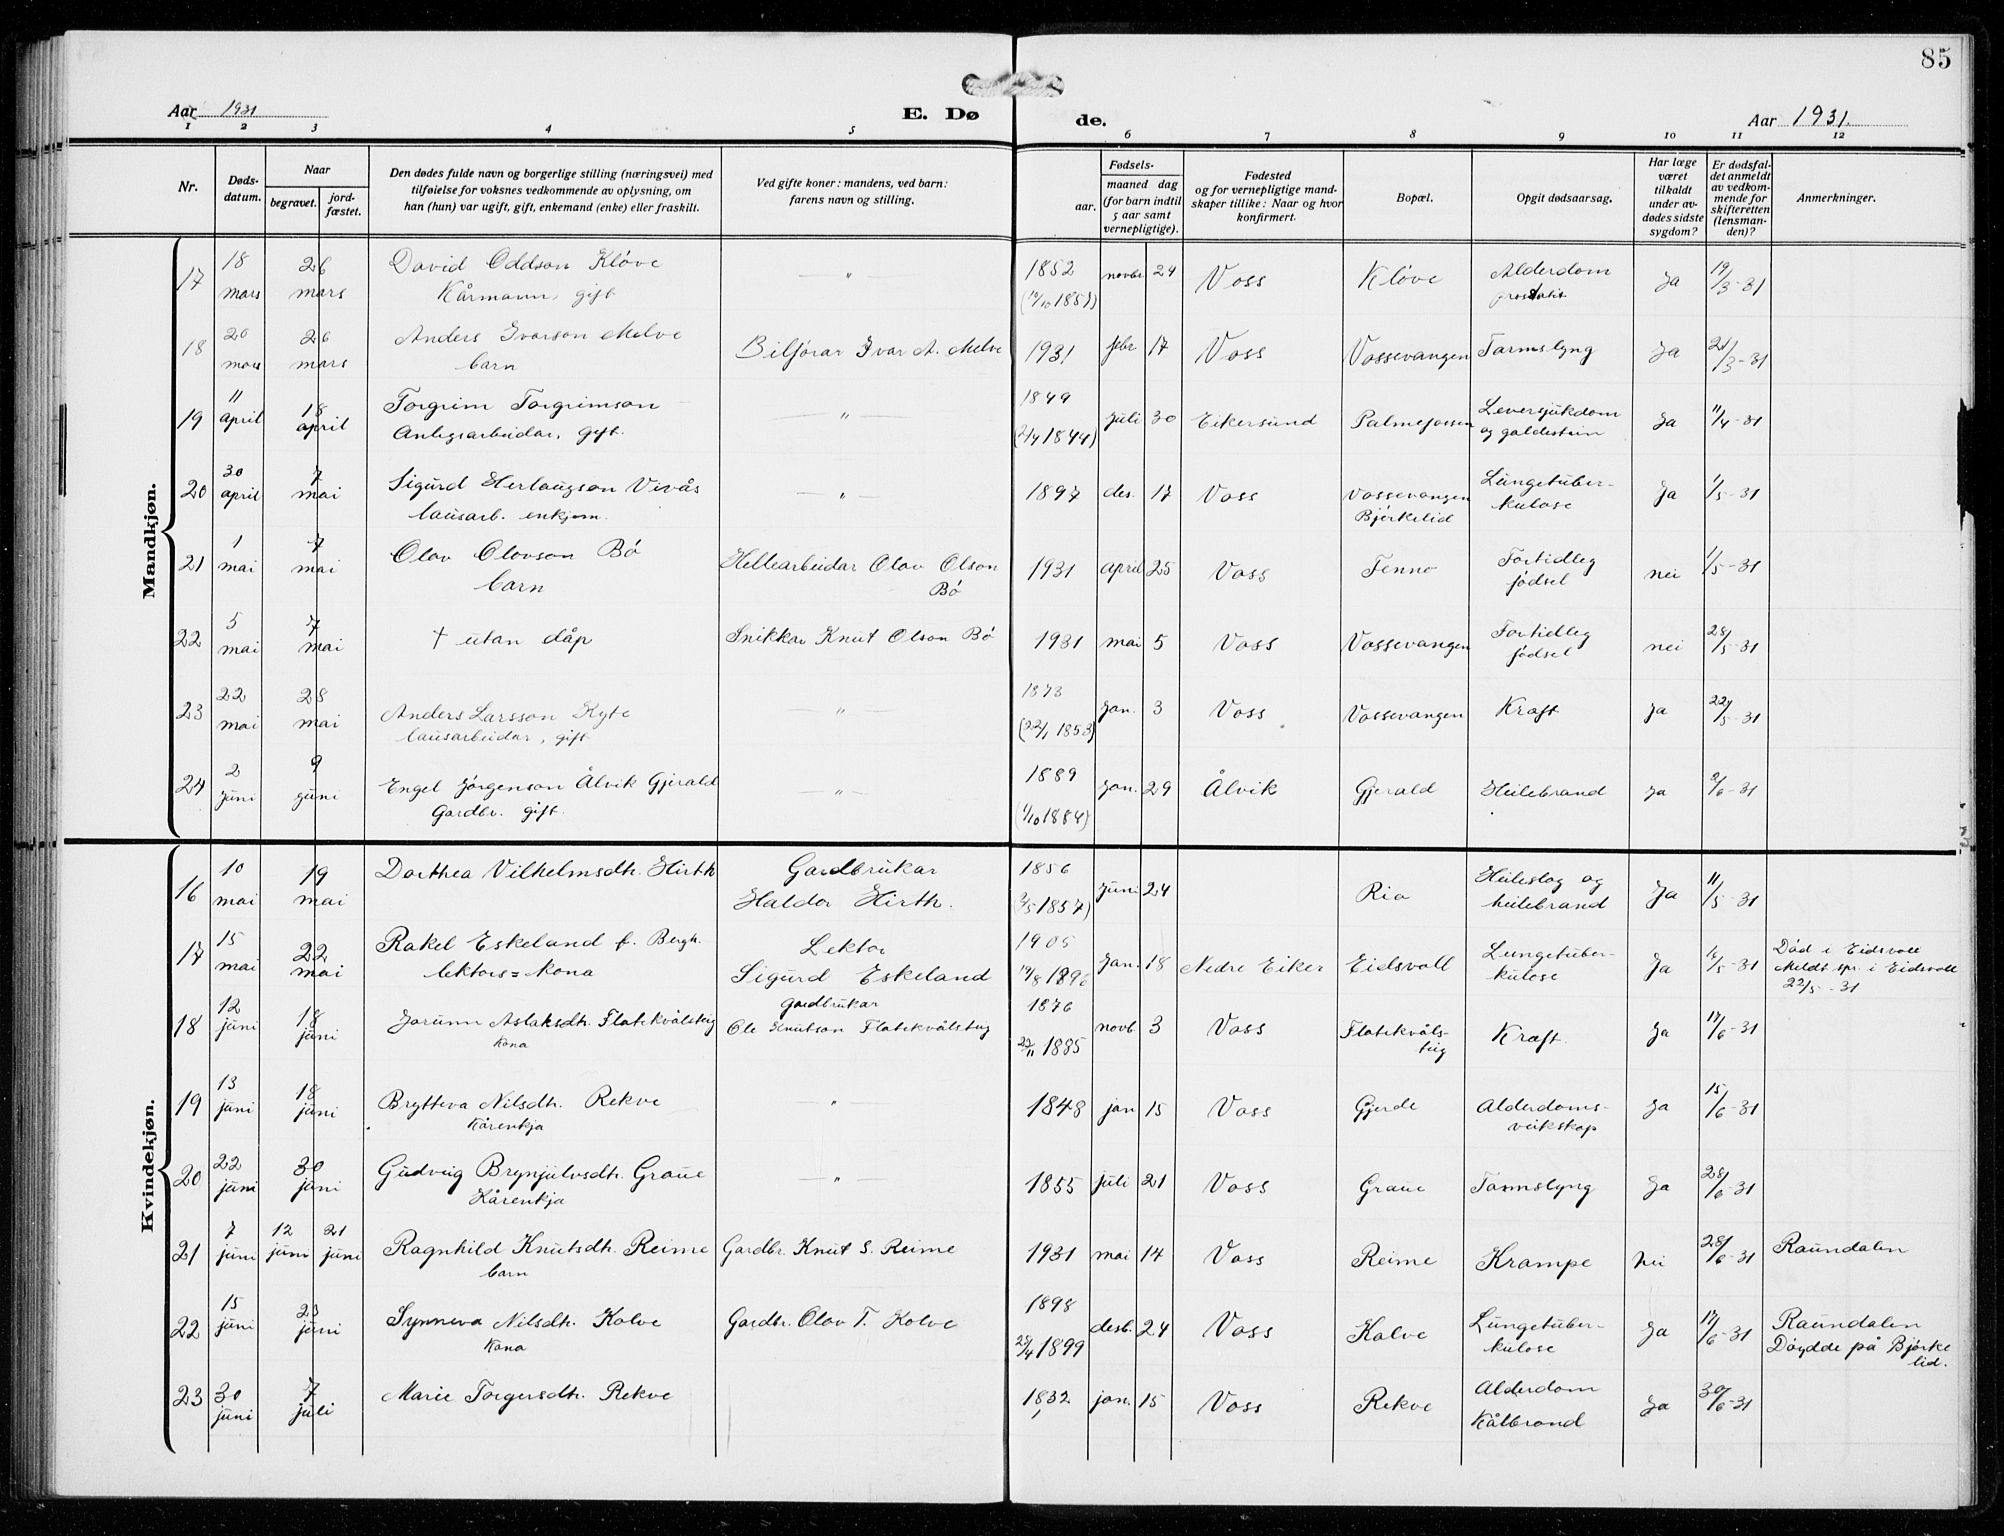 85
Aar 1931
E. Døde.
Aar 1931.
1 2 3 4 5 6 7 8 9 10 11 12
Nr.
Døds-
datum.
Naar
begravet.
jord-
fæstet.
Den dødes fulde navn og borgerlige stilling (næringsvei) med
tilføielse for voksnes vedkommende av oplysning, om
han (hun) var ugift, gift, enkemand (enke) eller fraskilt.
Ved gifte koner: mandens, ved barn:
farens navn og stilling.
Fødsels-
aar.
maaned dag
(for barn indtil
5 aar samt
vernepligtige).
Fødested
og for vernepligtige mand-
skaper tillike: Naar og hvor
konfirmert.
Bopæl.
Opgit dødsaarsag.
Har læge
været
tilkaldt
under av-
dødes sidste
sygdom?
Er dødsfal-
det anmeldt
av vedkom-
mende for
skifteretten
(lensman-
den)?
Anmerkninger.
Mandkjøn.
17 18 mars 26 mars David Oddson Kløve — " — 1852 novbr 24 Voss Kløve Alderdom Ja 19/3-31
Kårmann, gift (10/10 1857) prostatit
18 20 mars 26 mars Anders Ivarson Melve Bilførar Ivar A. Melve 1931 febr 17 Voss Vossevangen Tarmslyng Ja 21/3-31
barn
19 11 april 18 april Torgrim Torgrimson — " — 1849 juli 30 Eikersund Palmafossen Leversjukdom Ja 11/4-31
Anlegsarbeidar, gift. (2/4 1844) og galdestein
20 30 april 7 mai Sigurd Herlaugson Vivås — " — 1897 des. 17 Voss Vossevangen Lungetuber- Ja 1/5-31
lausarb. enkjem. Bjørkelid kulose
21 1 mai 7 mai Olav Olavson Bø Hellearbeidar Olav Olson 1931 april 25 Voss Tenno Fortidleg nei 1/5-31
barn Bø fødsel
22 5 mai 7 mai † utan dåp Snikkar Knut Olson Bø 1931 mai 5 Voss Vossevangen Fortidleg nei 28/5-31
fødsel
23 22 mai 28 mai Anders Larsson Kyte — " — 1873 jan. 3 Voss Vossevangen Kraft Ja 22/5-31
lausarbeidar, gift (22/1 1853)
24 2 juni 9 juni Engel Jørgenson Ålvik Gjerald — " — 1889 jan. 29 Ålvik Gjerald Heilebrand Ja 2/6-31
Gardbr. gift. (1/10 1884)
Kvindekjøn.
16 10 mai 19 mai Dorthea Vilhelmsdh. Hirth Gardbrukar 1856 juni 24 Ria Heileslag og Ja 11/5-31
Haldor Hirth. (3/5 1857) heilebrand
17 15 mai 22 mai Rakel Eskeland f. Bergh. Lektor 1905 jan. 18 Nedre Eiker Eidsvoll Lungetuber- Ja 16/5-31 Død i Eidsvoll
lektors=kona Sigurd Eskeland 19/8 1896 kulose Meldt spr. i Eidsvoll
22/5-31
18 12 juni 18 juni Jorunn Aslaksdh. Flatekvålsteig gardbrukar 1876 novb 3 Voss Flatekvåls- Kræft. Ja 17/6-31
kona Ole Knutson Flatekvålsteig 22/11 1885 teig
19 13 juni 18 juni Brytteva Nilsdh. Rekve — " — 1848 jan 15 Voss Gjerde Alderdoms- Ja 15/6-31
Kårenkja veikskap
20 22 juni 30 juni Gudveig Brynjulvsdh. Graue — " — 1855 juli 21 Voss Graue Tarmslyng Ja 28/6-31
Kårenkja
21 7 juni 12 juni 21 juni Ragnhild Knutsdh. Reime Gardbr. Knut S. Reime 1931 mai 14 Voss Reime Krampe Nei 28/6-31 Raundalen
barn
22 15 juni 23 juni Synneva Nilsdh. Kolve Gardbr. Olav T. Kolve 1898 desb. 24 Voss Kolve Lungetuber- Ja 17/6-31 Raundalen
Kona 23/4 1899 kulose Døydde på Bjørke
lid.
23 30 juni 7 juli Marie Torgersdh. Rekve 1832 jan. 15 Voss Rekve Alderdom Ja 30/6-31
Kålbrand